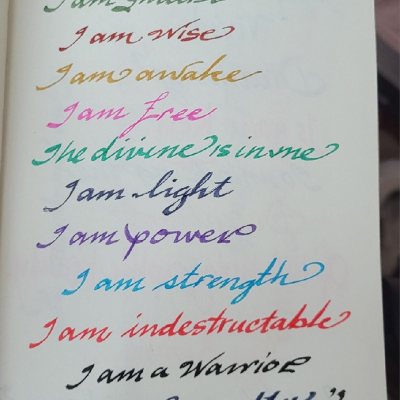 I am
I am wise
I am awake
I am free
The divine is in me
I am light
I am power
I am strength
I am indestructable
I am a Warrior